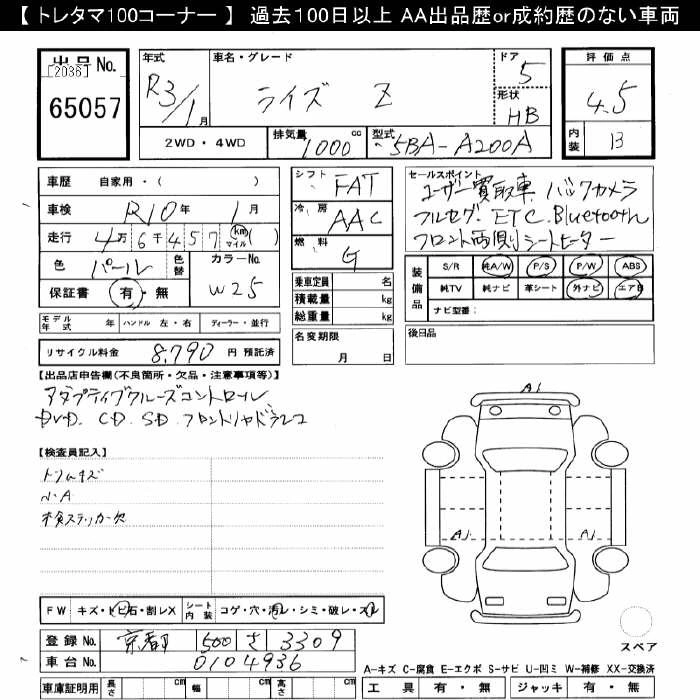 【 トレタマ100コーナー 】 過去100日以上 AA出品歴or成約歴のない車両
出品 No.
[2036]
65057
年式
R3/1月
車名・グレード
ライズ Z
ドア
5
形状
HB
評価点
4.5
内装
B
2WD・4WD
排気量
1000 cc
型式
5BA-A200A
車歴 自家用・( )
車検 R10年 1月
走行 4万6千457 (km マイル)( )
色 パール 色替 カラーNo. W25
保証書 有・無
シフト FAT
冷房 AAC
燃料 G
乗車定員 名
積載量 kg
総重量 kg
名変期限
月 日
セールスポイント
ユーザー買取車 バックカメラ
フルセグ. ETC. Bluetooth
フロント両側シートヒーター
装備品
S/R 純A/W P/S P/W ABS
純TV 純ナビ 革シート 外ナビ エアB
ナビ型番:
後日品
モデル年式 年 ハンドル 左・右 ディーラー・並行
リサイクル料金 8,790 円 預託済
【出品店申告欄(不良箇所・欠品・注意事項等)】
アダプティブクルーズコントロール
DVD. CD. SD. フロントリヤドラレコ
【検査員記入】
トリムキズ
N.A
ステッカー欠
A1
A1
A1
FW キズ・トビ石・割レX シート内装 コゲ・穴・汚レ・シミ・破レ・スレ
登録 No. 京都 500 さ 3309
車台 No. 0104936
スペア
A-キズ C-腐食 E-エクボ S-サビ U-凹ミ W-補修 XX-交換済
車庫証明用 長さ cm 幅 cm 高さ cm
工具 有・無 ジャッキ 有・無